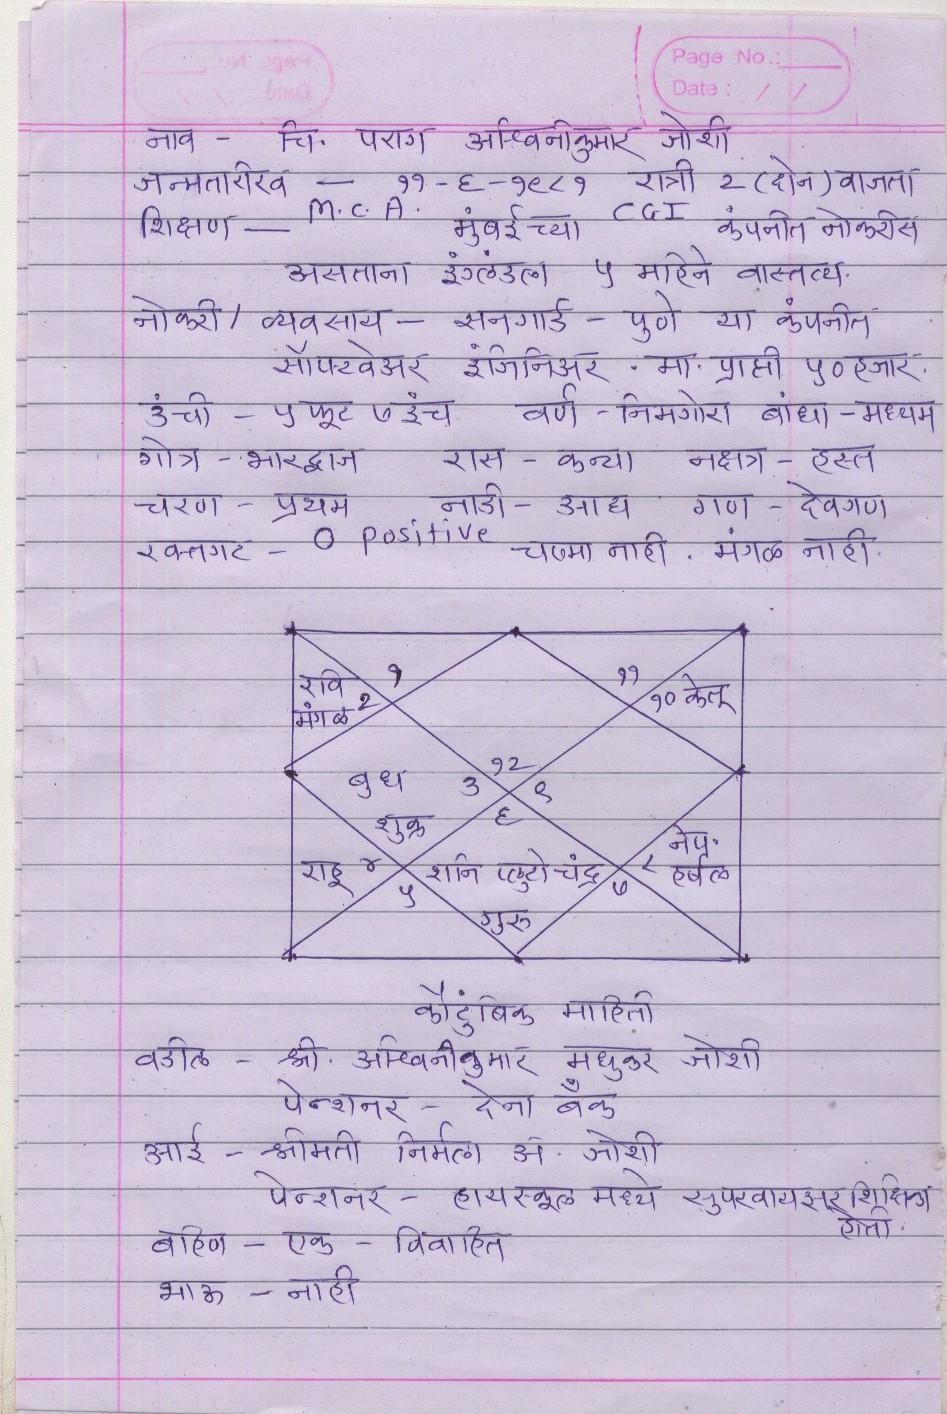 Page No.:
Date : / /
नाव - चि. पराग अश्विनीकुमार जोशी
जन्मतारीख — ११-६-१९८१ रात्री २ (दोन) वाजता
शिक्षण — M.C.A. मुंबईच्या CGI कंपनीत नोकरीस
असताना इंग्लंडला ५ महिने वास्तव्य.
नोकरी/ व्यवसाय - सनगार्ड - पुणे या कंपनीत
सॉफ्टवेअर इंजिनिअर. मा. प्राप्ती ५०हजार.
उंची - ५ फूट ७ इंच वर्ण - निमगोरा बांधा - मध्यम
गोत्र - भारद्वाज रास - कन्या नक्षत्र - हस्त
चरण - प्रथम नाडी - आद्य गण - देवगण
रक्तगट - O positive चष्मा नाही. मंगळ नाही.
१ ११
रवि १० केतू
मंगळ २
१२
बुध ३ ९
६
शुक्र
नेप.
राहू ४ शनि प्लुटो चंद्र ८ हर्षल
५ ७
गुरू
कौटुंबिक माहिती
वडील - श्री. अश्विनीकुमार मधुकर जोशी
पेन्शनर - देना बँक
आई - श्रीमती निर्मला अ. जोशी
पेन्शनर - हायस्कूल मध्ये सुपरवायझर शिक्षिका
होती.
बहिण - एक - विवाहित
भाऊ - नाही